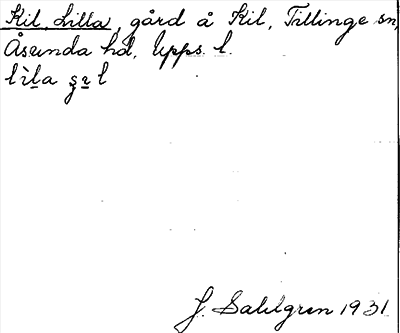 Kil, Lilla, gård å Kil, Tillinge sn,
Åsunda hd, Upps. l.
J. Sahlgren 1931